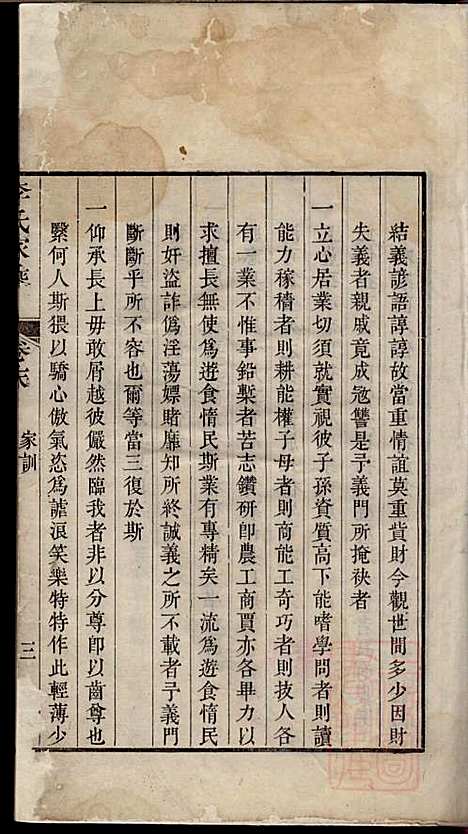 結義諺語諄諄故當重情誼莫重貲財今觀世間多少因財
失義者親戚竟成寇讐是予義門所掩袂者
一立心居業切須就實視彼子孫資質高下能嗜學問者則讀
能力稼穡者則耕能權子母者則商能工奇巧者則技人各
有一業不惟事鉛槧者苦志鑽研卽農工商賈亦各畢力以
求擅長無使爲遊食惰民斯業有專精矣一流爲遊食惰民
則奸盜詐僞淫蕩嫖賭靡知所終誠義之所不載者予義門
斷斷乎所不容也爾等當三復於斯
一仰承長上毋敢屑越彼儼然臨我者非以分尊卽以齒尊也
繄何人斯猥以驕心傲氣恣爲謔浪笑樂特特作此輕薄少
李氏家乘
家訓
三